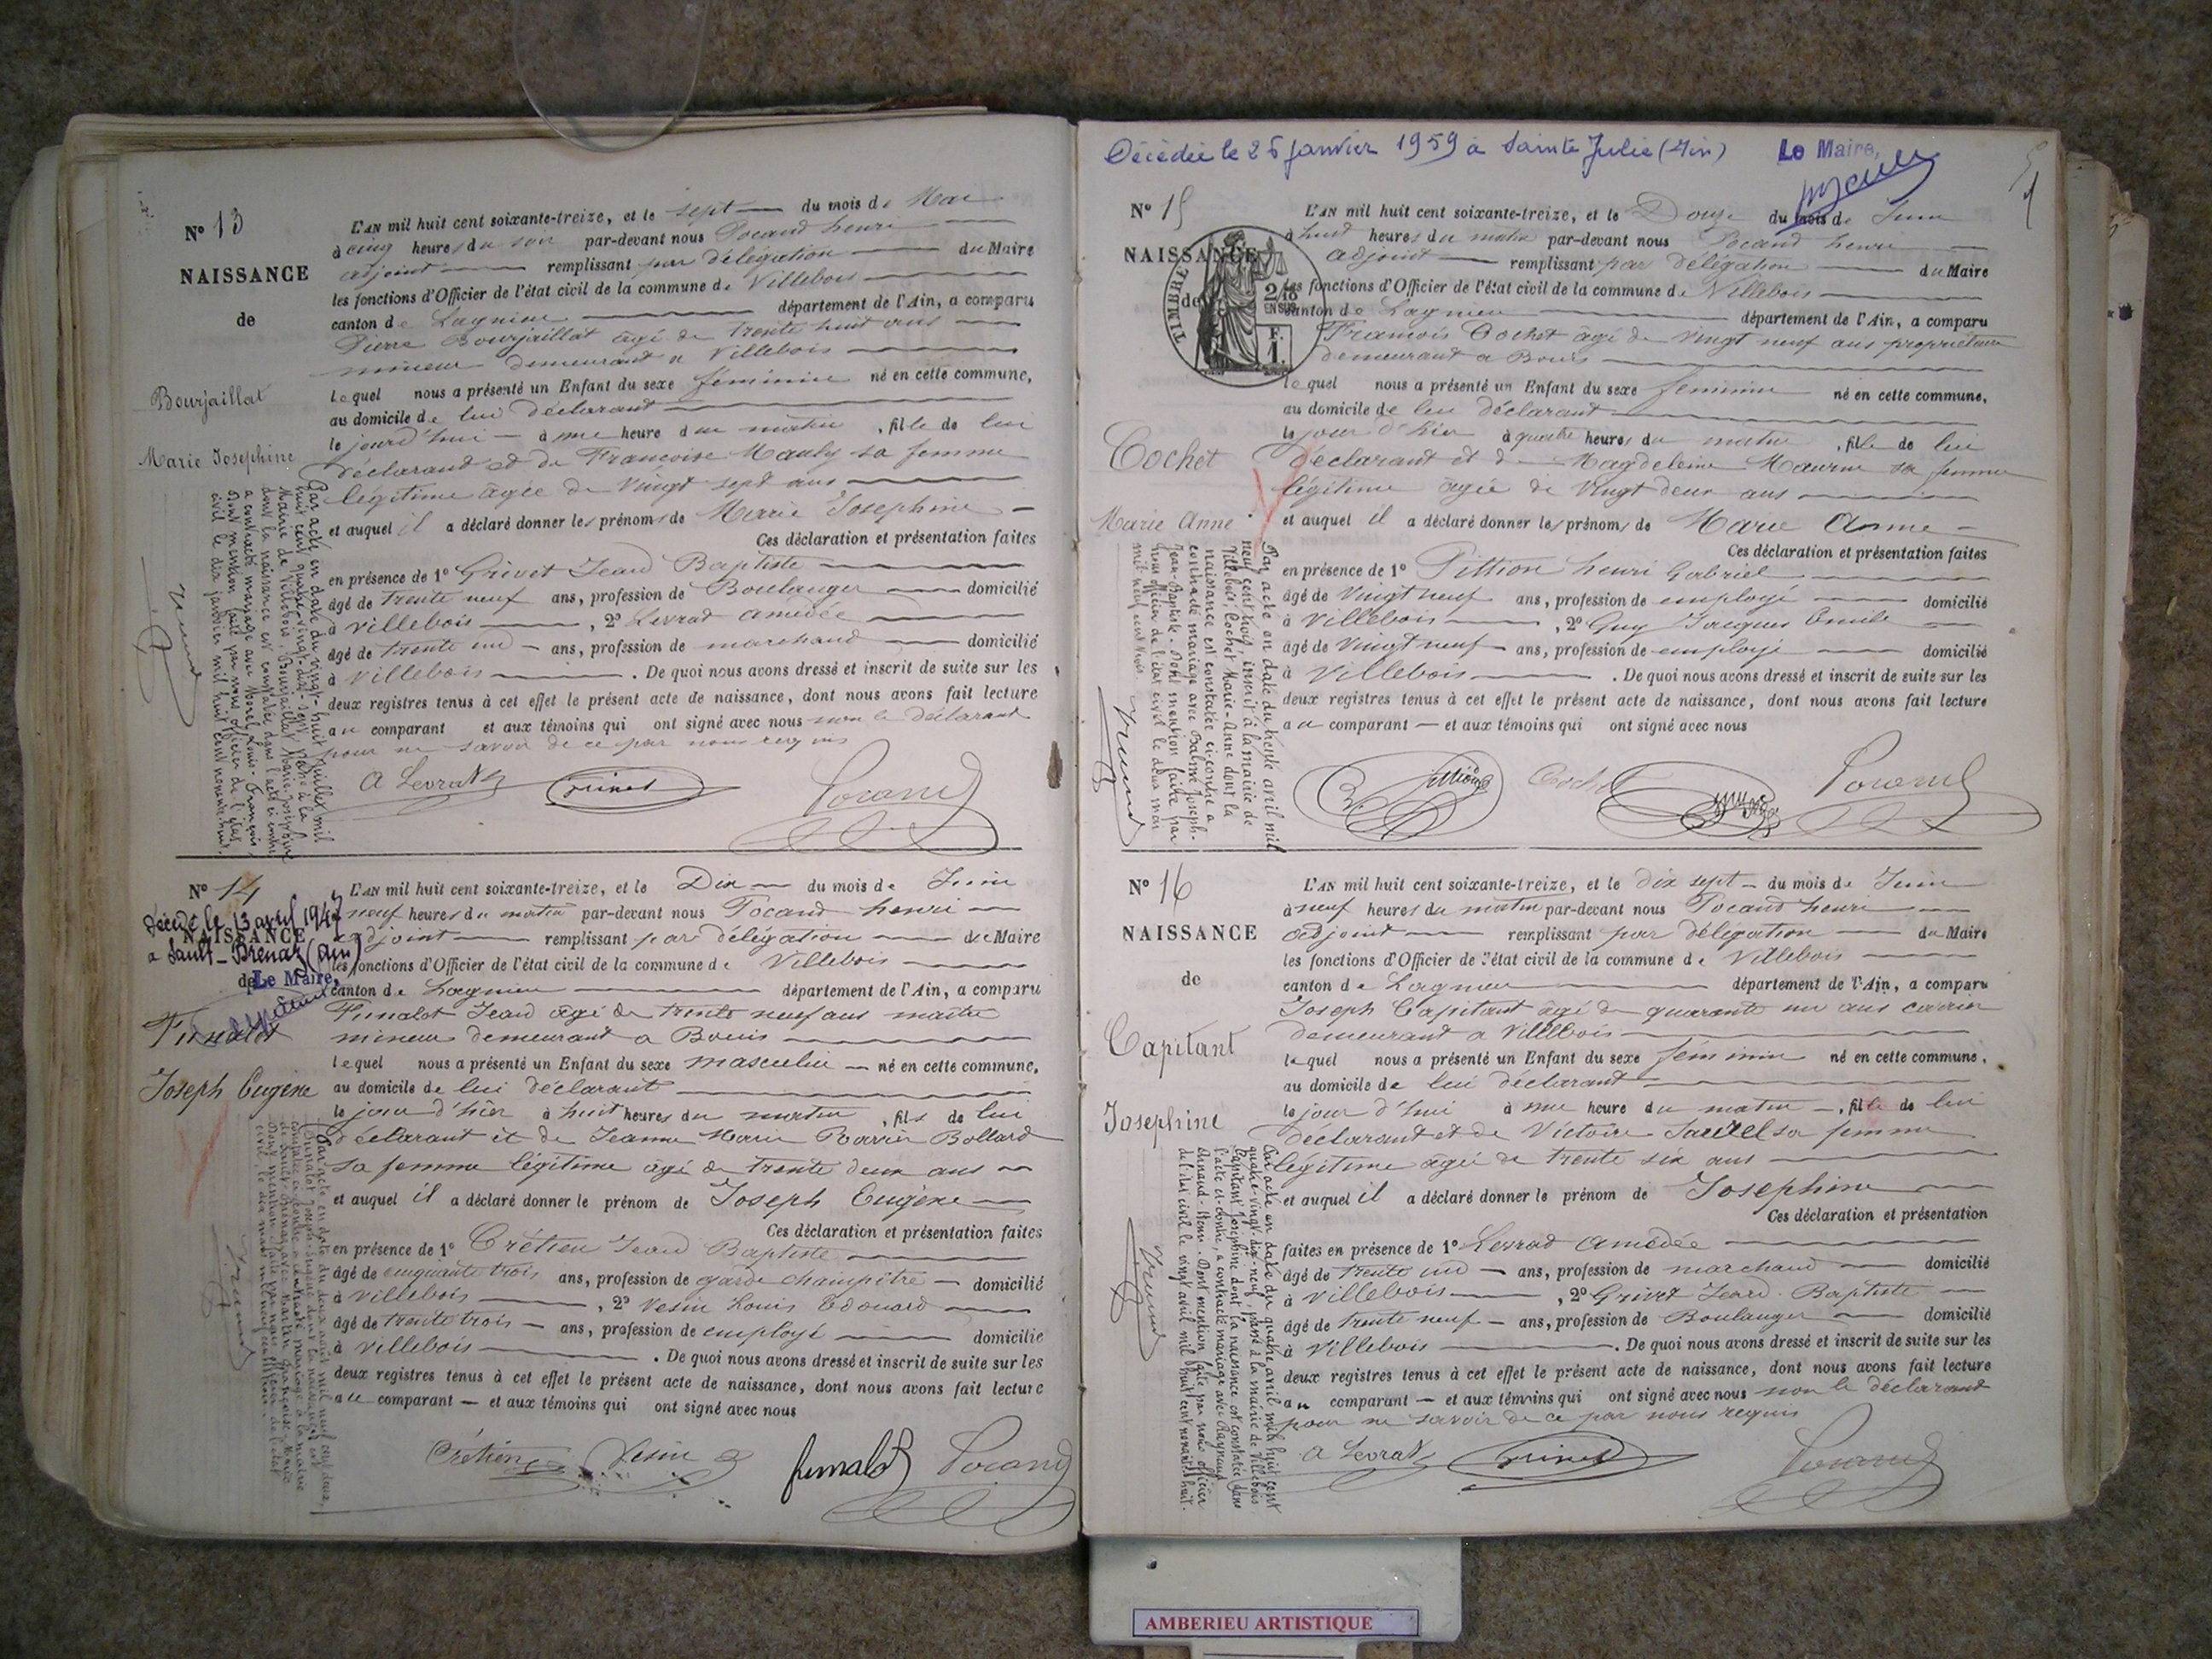 Nº 13
NAISSANCE
de
Bourjaillat
Marie Josephine
L'AN mil huit cent soixante-treize, et le sept du mois de Mai
à cinq heures du soir par-devant nous Pocard henri
adjoint remplissant par délégation du Maire
les fonctions d'Officier de l'état civil de la commune de Villebois
canton de Lagnieu département de l'Ain, a comparu
Pierre Bourjaillat âgé de trente huit ans
mineur demeurant a Villebois
lequel nous a présenté un Enfant du sexe féminin né en cette commune,
au domicile de lui déclarant
le jourd'hui à une heure du matin, fille de lui
déclarant et de Francoise Mauly sa femme
légitime âgée de vingt sept ans
et auquel il a déclaré donner les prénoms de Marie Josephine
Ces déclaration et présentation faites
en présence de 1º Grivet Jean Baptiste
âgé de trente neuf ans, profession de Boulanger domicilié
à Villebois, 2º Levrat amédée
âgé de trente un ans, profession de marchand domicilié
à Villebois. De quoi nous avons dressé et inscrit de suite sur les
deux registres tenus à cet effet le présent acte de naissance, dont nous avons fait lecture
au comparant et aux témoins qui ont signé avec nous non le déclarant
pour ne savoir de ce par nous requis
A Levrat Grivet Pocard
Par acte en date du vingt-huit juillet mil
huit cent quatre-vingt-dix-sept, passé à la
Mairie de Villebois, Bourjaillat Marie-Josephine
dont la naissance est constatée dans l'acte ci-contre
a contracté mariage avec Morel Louis-François.
Dont mention faite par nous officier de l'état
civil le dix janvier mil huit cent nonante huit.
Nº 14
décédé le 13 avril 1947
NAISSANCE
a Sault-Brénaz (Ain)
de Le Maire,
Funalot
Joseph Eugène
L'AN mil huit cent soixante-treize, et le Dix du mois de Juin
à neuf heures du matin par-devant nous Pocard henri
adjoint remplissant par délégation du Maire
les fonctions d'Officier de l'état civil de la commune de Villebois
canton de Lagnieu département de l'Ain, a comparu
Funalot Jean âgé de trente neuf ans maître
mineur demeurant a Bouis
lequel nous a présenté un Enfant du sexe masculin né en cette commune,
au domicile de lui déclarant
le jour d'hier à huit heures du matin, fils de lui
déclarant et de Jeanne Marie Bollard
sa femme légitime âgé de trente deux ans
et auquel il a déclaré donner le prénom de Joseph Eugène
Ces déclaration et présentation faites
en présence de 1º Crétien Jean Baptiste
âgé de cinquante trois ans, profession de garde champêtre domicilié
à Villebois, 2º Vesin Louis Edouard
âgé de trente trois ans, profession de employé domicilié
à Villebois. De quoi nous avons dressé et inscrit de suite sur les
deux registres tenus à cet effet le présent acte de naissance, dont nous avons fait lecture
au comparant et aux témoins qui ont signé avec nous
Crétien Vesin funalot Pocard
Décédée le 26 janvier 1959 à Sainte Julie (Ain) Le Maire,
Nº 15
NAISSANCE
de
TIMBRE
F.
1.
Cochet
Marie Anne
L'AN mil huit cent soixante-treize, et le Douze du mois de Juin
à huit heures du matin par-devant nous Pocard henri
adjoint remplissant par délégation du Maire
les fonctions d'Officier de l'état civil de la commune de Villebois
canton de Lagnieu département de l'Ain, a comparu
Francois Cochet âgé de vingt neuf ans propriétaire
demeurant a Bouis
lequel nous a présenté un Enfant du sexe féminin né en cette commune,
au domicile de lui déclarant
le jour d'hier à quatre heures du matin, fille de lui
déclarant et de Magdeleine Maurin sa femme
légitime âgée de vingt deux ans
et auquel il a déclaré donner les prénoms de Marie Anne
Ces déclaration et présentation faites
en présence de 1º Pittion henri Gabriel
âgé de vingt neuf ans, profession de employé domicilié
à Villebois, 2º Guy Jacques Emile
âgé de vingt neuf ans, profession de employé domicilié
à Villebois. De quoi nous avons dressé et inscrit de suite sur les
deux registres tenus à cet effet le présent acte de naissance, dont nous avons fait lecture
au comparant et aux témoins qui ont signé avec nous
Pittion Cochet Pocard
Par acte en date du trente avril mil
neuf cent trois, inscrit à la mairie de
Villebois, Cochet Marie-Anne dont la
naissance est constatée ci-contre a
contracté mariage avec Balme Joseph-
Jean-Baptiste. Dont mention faite par
nous officier de l'état civil le deux mai
mil neuf cent trois.
Nº 16
NAISSANCE
de
Capitant
Josephine
L'AN mil huit cent soixante-treize, et le dix sept du mois de Juin
à neuf heures du matin par-devant nous Pocard henri
adjoint remplissant par délégation du Maire
les fonctions d'Officier de l'état civil de la commune de Villebois
canton de Lagnieu département de l'Ain, a comparu
Joseph Capitant âgé de quarante un ans carrier
demeurant a Villebois
lequel nous a présenté un Enfant du sexe féminin né en cette commune,
au domicile de lui déclarant
le jour d'hui à une heure du matin, fille de lui
déclarant et de Victoire sa femme
légitime âgée de trente six ans
et auquel il a déclaré donner le prénom de Josephine
Ces déclaration et présentation
faites en présence de 1º Levrat Amédée
âgé de trente un ans, profession de marchand domicilié
à Villebois, 2º Grivet Jean Baptiste
âgé de trente neuf ans, profession de Boulanger domicilié
à Villebois. De quoi nous avons dressé et inscrit de suite sur les
deux registres tenus à cet effet le présent acte de naissance, dont nous avons fait lecture
au comparant et aux témoins qui ont signé avec nous non le déclarant
pour ne savoir de ce par nous requis
A Levrat Grivet Pocard
Par acte en date du quatre avril mil huit cent
quatre-vingt-dix-neuf, passé à la mairie de Villebois
Capitant Josephine dont la naissance est constatée dans
l'acte ci-contre, a contracté mariage avec Raynaud
Henri. Dont mention faite par nous officier
de l'état civil le vingt avril mil huit cent
AMBERIEU ARTISTIQUE